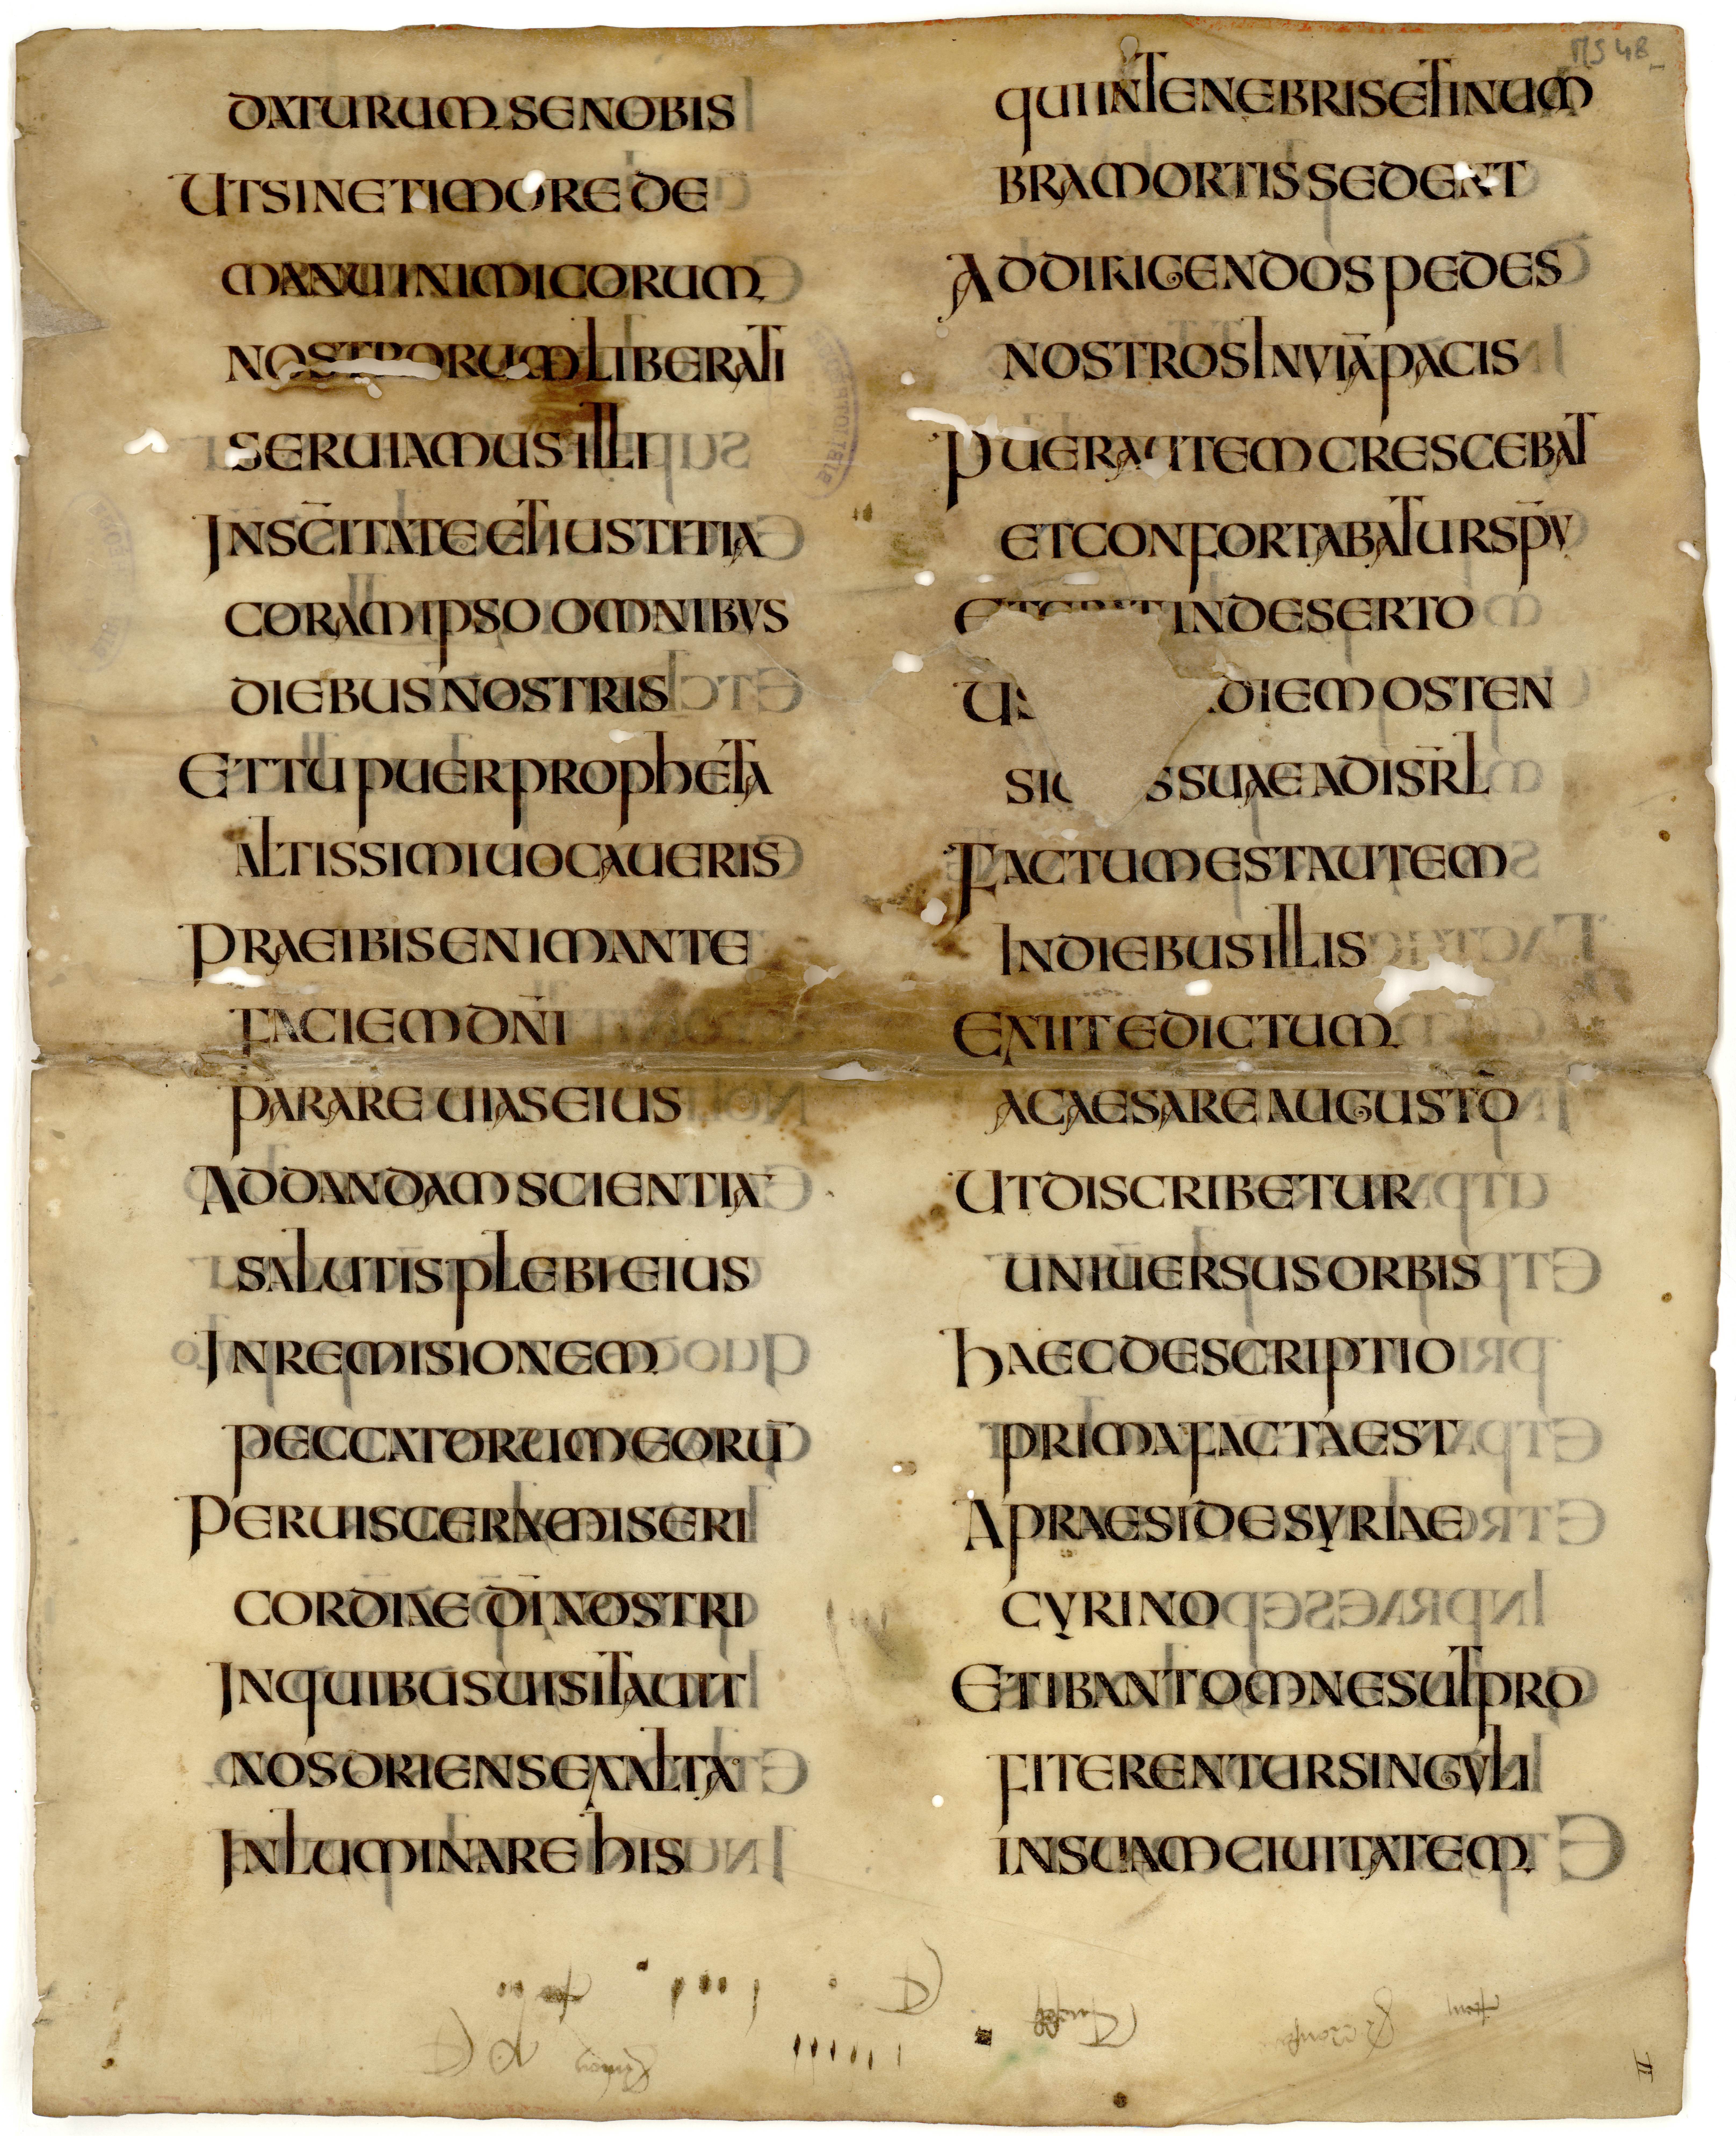 DATURUM SE NOBIS
UT SINE TIMORE DE
MANU INIMICORUM
NOSTRORUM LIBERATI
SERUIAMUS ILLI
IN SC̄ITATE ET IUSTITIA
CORAM IPSO OMNIBVS
DIEBUS NOSTRIS
ET TU PUER PROPHETA
ALTISSIMI UOCAUERIS
PRAEIBIS ENIM ANTE
FACIEM DN̄I
PARARE UIAS EIUS
AD DANDAM SCIENTIA
SALUTIS PLEBI EIUS
IN REMISIONEM
PECCATORUM EORŪ
PER UISCERA MISERI
CORDIAE DĪ NOSTRI
IN QUIBUS UISITAUIT
NOS ORIENS EX ALTO
INLUMINARE HIS
QUI IN TENEBRIS ET IN UM
BRA MORTIS SEDENT
AD DIRIGENDOS PEDES
NOSTROS IN VIĀ PACIS
PUER AUTEM CRESCEBAT
ET CONFORTABATUR SP̄V
ET ERAT IN DESERTO
US DIEM OSTEN
SIO S SUAE AD ISR̄L
FACTUM EST AUTEM
IN DIEBUS ILLIS
EXIIT EDICTUM
A CAESARE AUGUSTO
UT DISCRIBERETUR
UNIUERSUS ORBIS
HAEC DESCRIPTIO
PRIMA FACTA EST
A PRAESIDE SYRIAE
CYRINO
ET IBANT OMNES UT PRO
FITERENTUR SINGVLI
IN SUAM CIUITATEM